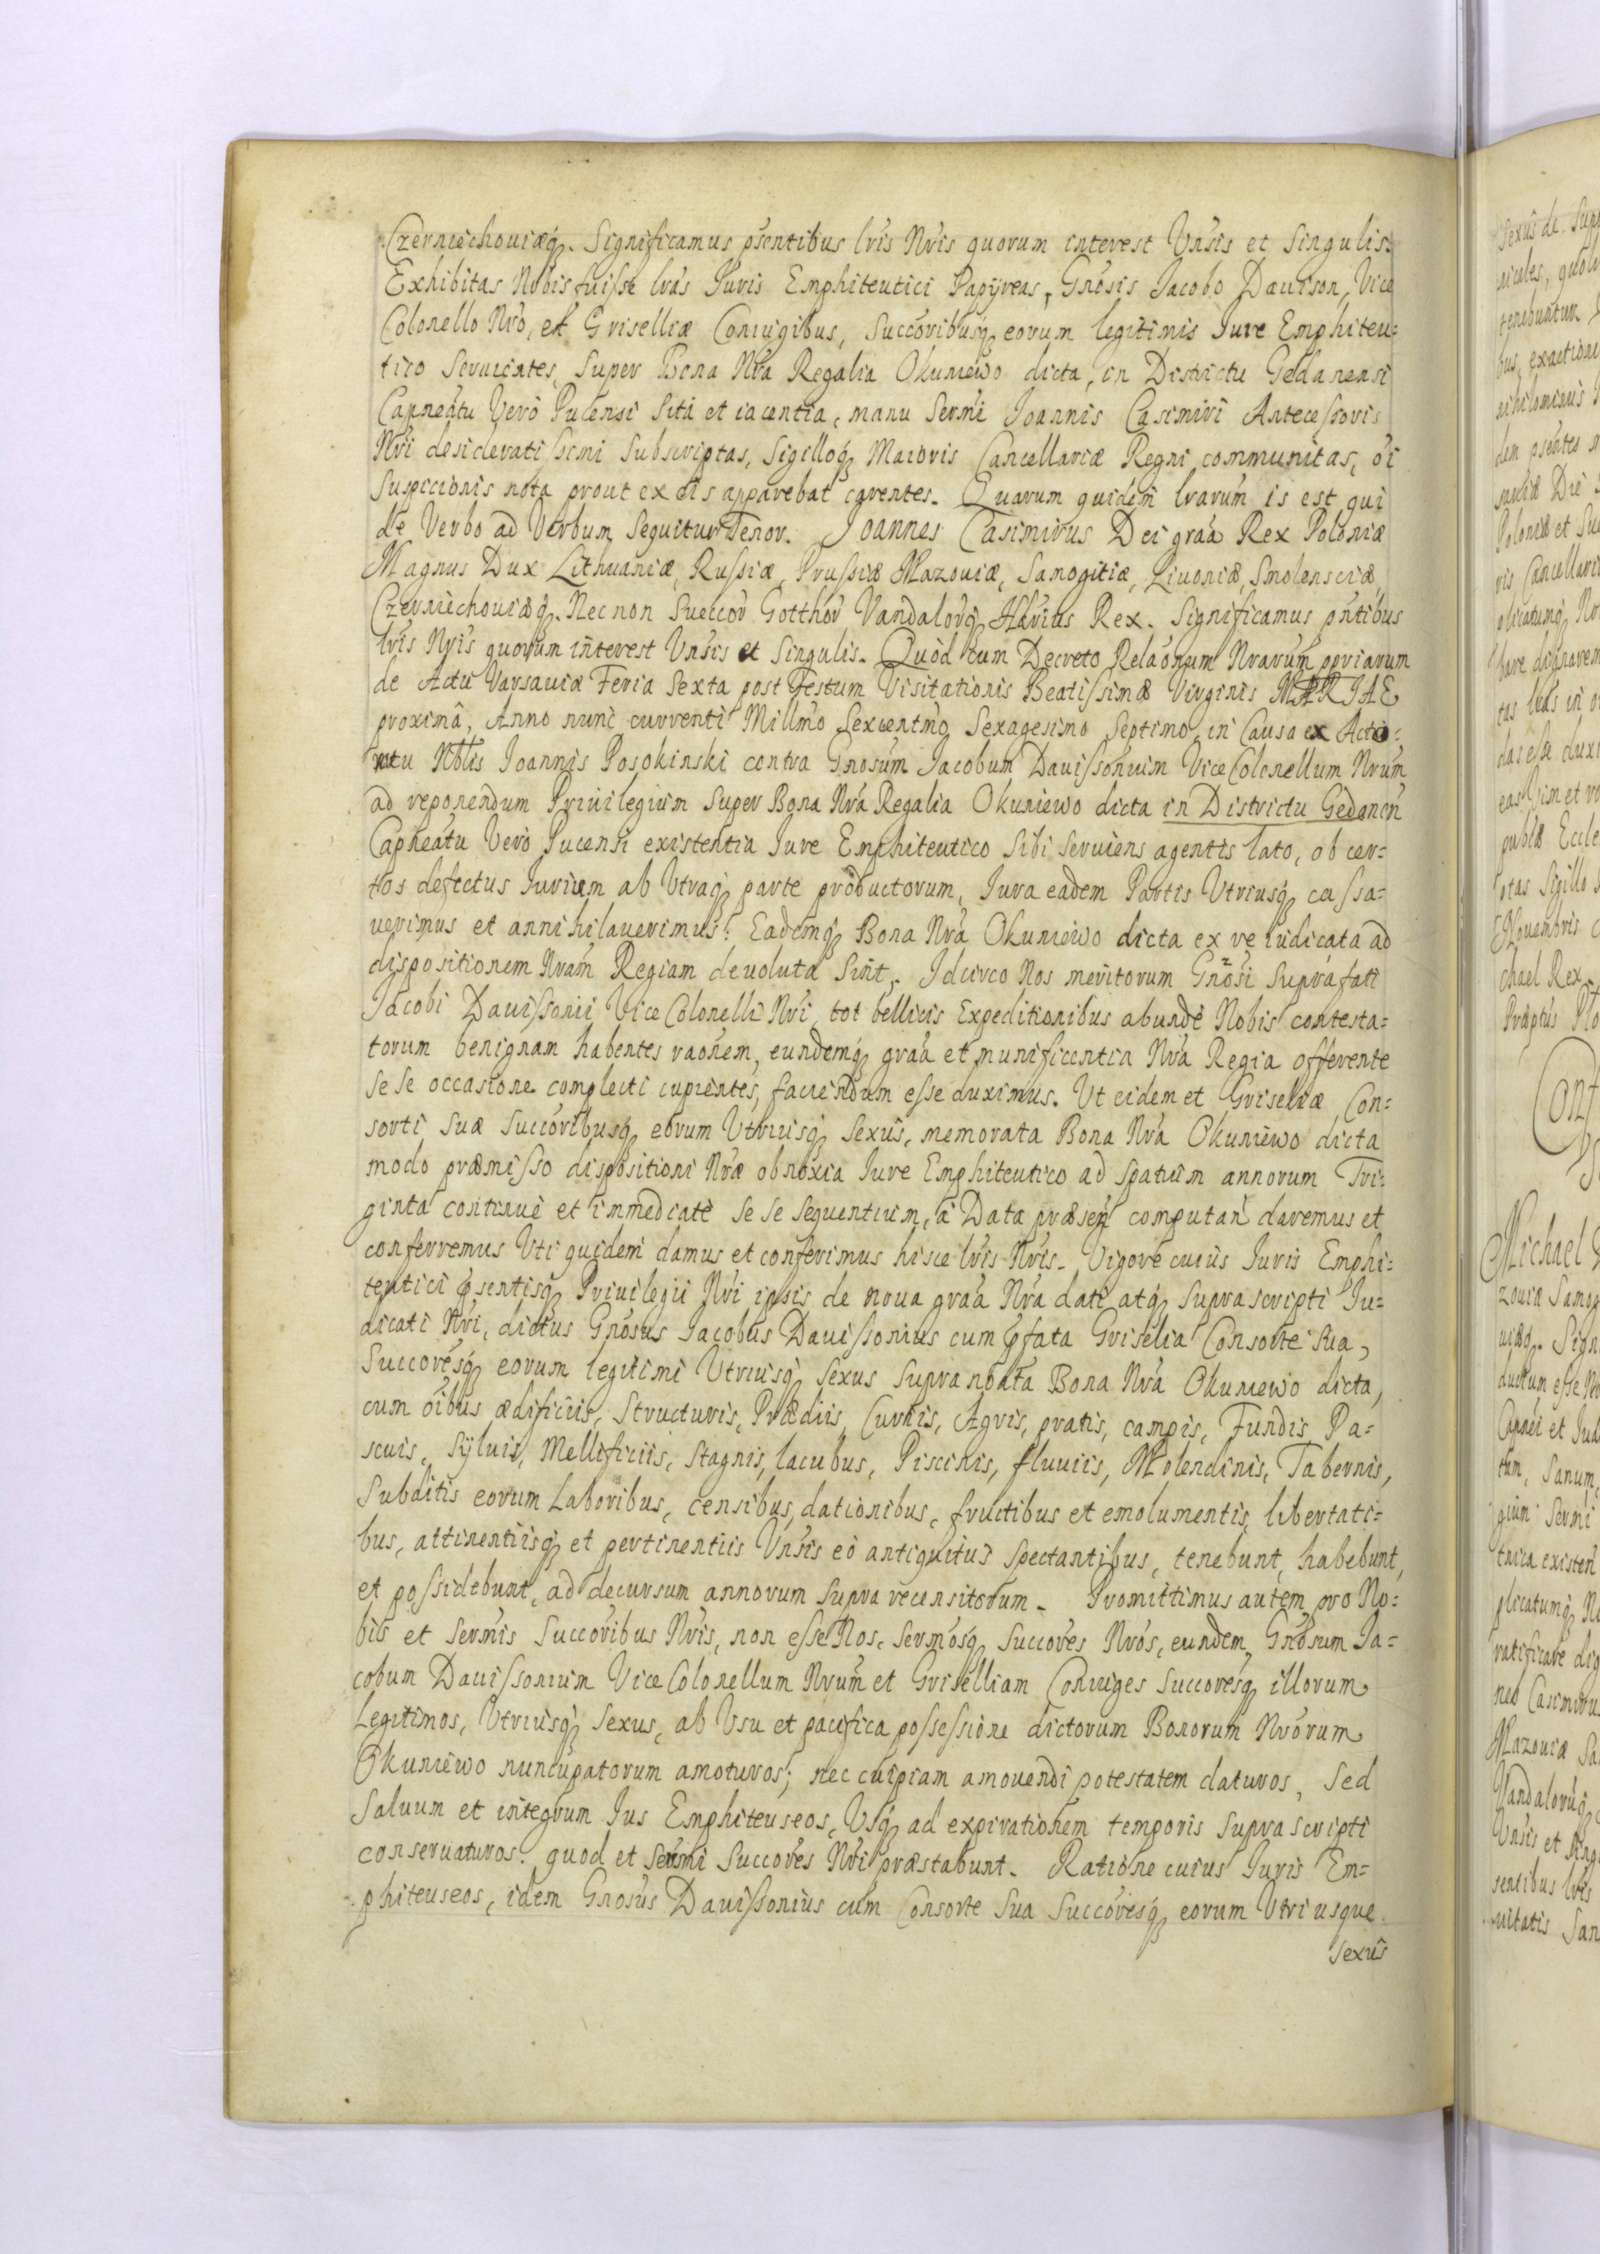 Czerniechouiæq. Significamus psentibus lris Nris quorum interest Vnsis et Singulis.
Exhibitas Nobis fuisse lras Juris Emphiteutici Papyreas, Gnosis Jacobo Dauison, Vice
Colonello Nro, et Griselliæ Coniugibus, Succoribusq eorum legitimis Jure Emphiteu=
tico Seruientes, Super Bona Nra Regalia Okuniewo dicta, in Districtu Gedanensi
Capneatu Vero Pucensi Sita et iacentia, manu Sermi Joannis Casimiri Antecessoris
Nri desideratissimi Subscriptas, Sigilloq Maioris Cancellariæ Regni communitas, oi
Suspicionis nota prout ex eis apparebat carentes. Quarum quidem lrarum is est qui
de Verbo ad Verbum Sequitur Tenor. Joannes Casimirus Dei graa Rex Poloniæ
Magnus Dux Lithuaniæ, Russiæ, Prussiæ Mazouiæ, Samogitiæ, Liuoniæ, Smolensciæ,
Czerniechouiæq. Nec non Sueccor Gotthor Vandalorq Hærius Rex. Significamus pntibus
lris Nris quorum interest Vnsis et Singulis. Quòd cum Decreto Relaonum Nrarum ppriarum
de Actu Varsauiæ Feria Sexta post Festum Visitationis Beatissimæ Virginis MARIAE
proximâ, Anno nunc currenti Millmo Sexcentmo Sexagesimo Septimo, in Causa ex Acto=
ratu Nblis Joannis Posokinski contra Gnosum Jacobum Dauissonium Vice Colonellum Nrum
ad reponendum Priuilegium Super Bona Nra Regalia Okuniewo dicta in Districtu Gedanen
Capneatu Vero Pucensi existentia Jure Emphiteutico Sibi Seruiens agentis lato, ob cer=
tos defectus Jurium ab Vtraq parte productorum, Jura eadem Partis Vtriusq cassa=
uerimus et annihilauerimus: Eademq Bona Nra Okuniewo dicta ex re iudicata ad
dispositionem Nram Regiam deuoluta Sint. Idcirco Nos meritorum Gnosi Suprafati
Jacobi Dauissonii Vice Colonelli Nri, tot bellicis Expeditionibus abundè Nobis contesta=
torum benignam habentes raonem, eundemq graa et munificentia Nra Regia offerente
se se occasione complecti cupientes, faciendum esse duximus. Vt eidem et Griseliæ Con=
sorti Suæ Succoribusq eorum Vtriusq Sexûs, memorata Bona Nra Okuniewo dicta
modo præmisso dispositioni Nræ obnoxia Jure Emphiteutico ad Spatium annorum Tri=
ginta continuè et immediatè se se Sequentium, à Data præsen computan daremus et
conferremus Vti quidem damus et conferimus hisce lris Nris. Vigore cuius Juris Emphi=
teutici psentisq Priuilegii Nri ipsis de noua graa Nra dati atq Suprascripti Ju=
dicati Nri, dictus Gnosus Jacobus Dauissonius cum pfata Griselia Consorte Sua,
Succoresq eorum legitimi Vtriusq Sexus Supra noata Bona Nra Okuniewo dicta,
cum oibus ædificiis, Structuris, Prædiis, Curiis, Agris, pratis, campis, Fundis, Pa=
scuis, Syluis, Mellificiis, Stagnis, lacubus, Piscinis, fluuiis, Molendinis, Tabernis,
Subditis eorum Laboribus, censibus, dationibus, fructibus et emolumentis, libertati=
bus, attinentiisq et pertinentiis Vnsis eò antiquitus Spectantibus, tenebunt, habebunt,
et possidebunt, ad decursum annorum Supra recensitorum. Promittimus autem pro No=
bis et Sermis Succoribus Nris, non esse Nos, Sermosq Succores Nros, eundem Gnosum Ja=
cobum Dauissonium Vice Colonellum Nrum et Griselliam Coniuges Succoresq illorum
Legitimos, Vtriusq Sexus, ab Vsu et pacifica possessione dictorum Bonorum Nrorum
Okuniewo nuncupatorum amoturos; nec cuipiam amouendi potestatem daturos, Sed
Saluum et integrum Jus Emphiteuseos, Vsq ad expirationem temporis Supra scripti
conseruaturos. quod et Sermi Succores Nri præstabunt. Ratione cuius Juris Em=
phiteuseos, idem Gnosus Dauissonius cum Consorte Sua Succoresq eorum Vtriusque
Sexûs